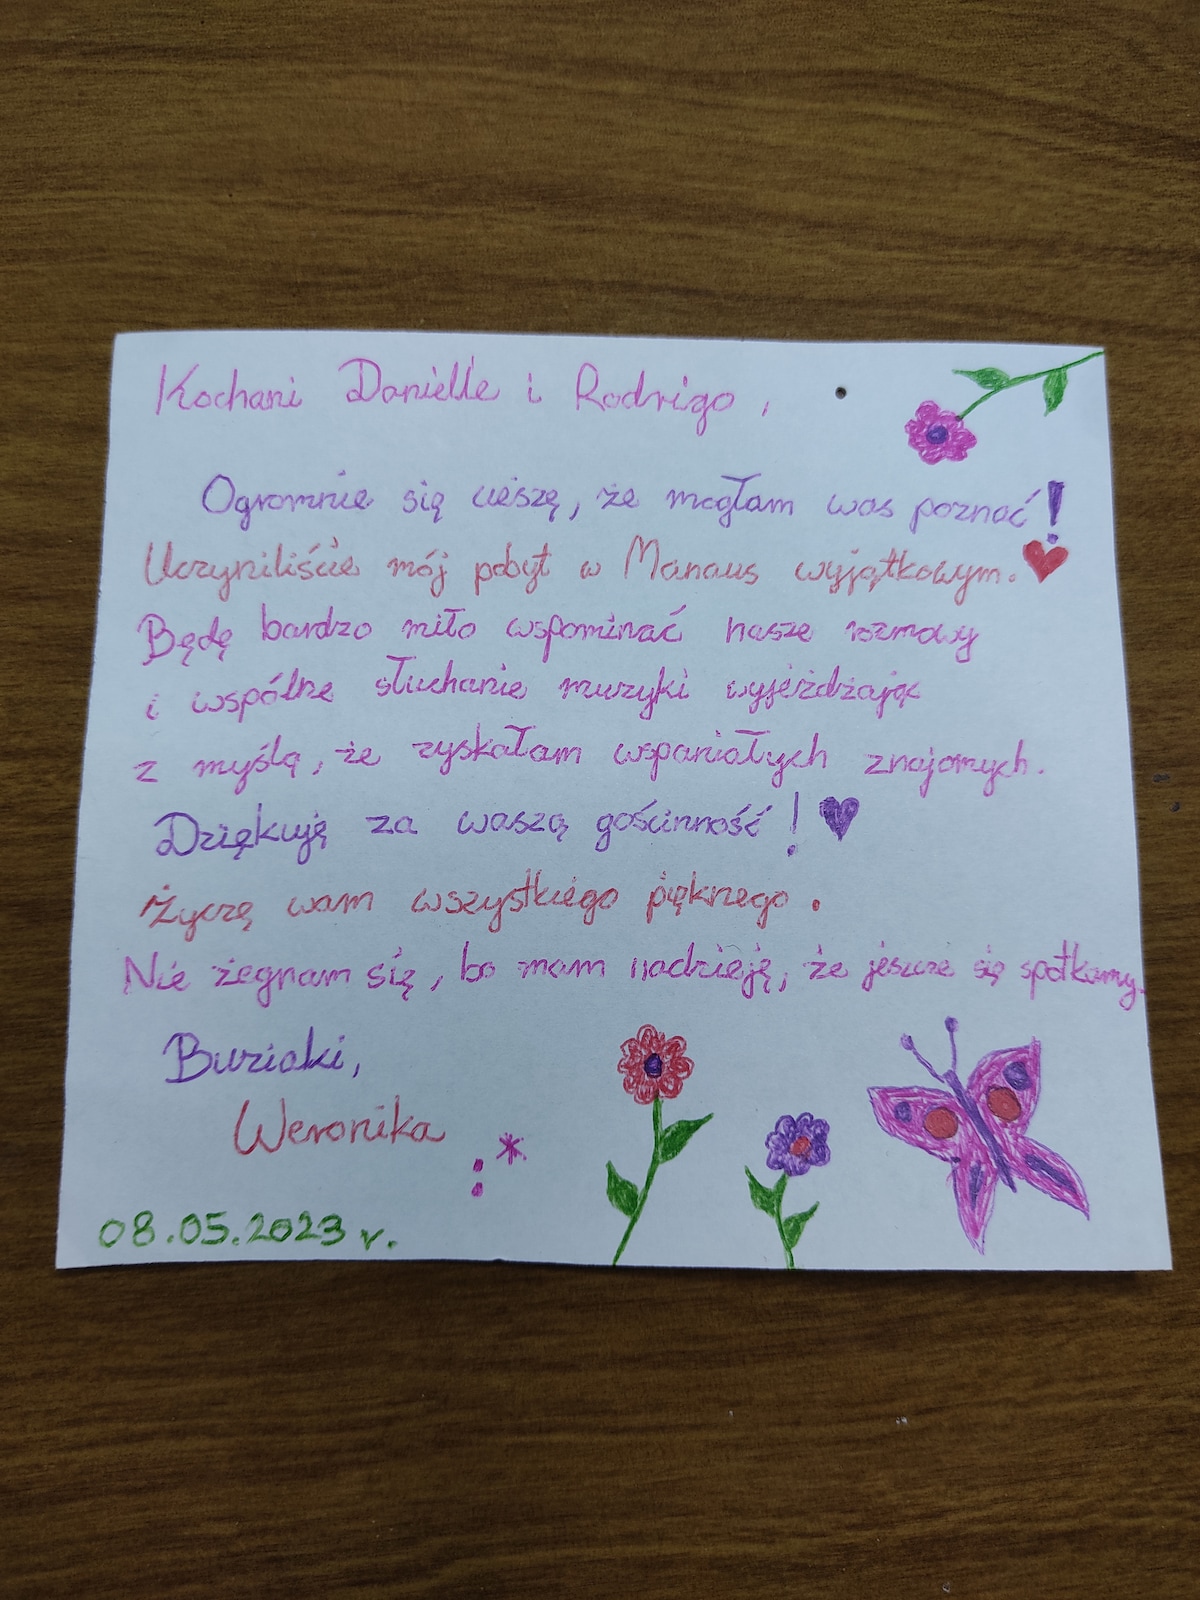 Kochani Danielle i Rodrigo,
Ogromnie się cieszę, że mogłam was poznać!
Uczyniliście mój pobyt w Manaus wyjątkowym.♥
Będę bardzo miło wspominać nasze rozmowy
i wspólne słuchanie muzyki wyjeżdżając
z myślą, że zyskałam wspaniałych znajomych.
Dziękuję za waszą gościnność!♥
Życzę wam wszystkiego pięknego.
Nie żegnam się, bo mam nadzieję, że jeszcze się spotkamy.
Buziaki,
Weronika
:*
08.05.2023 r.